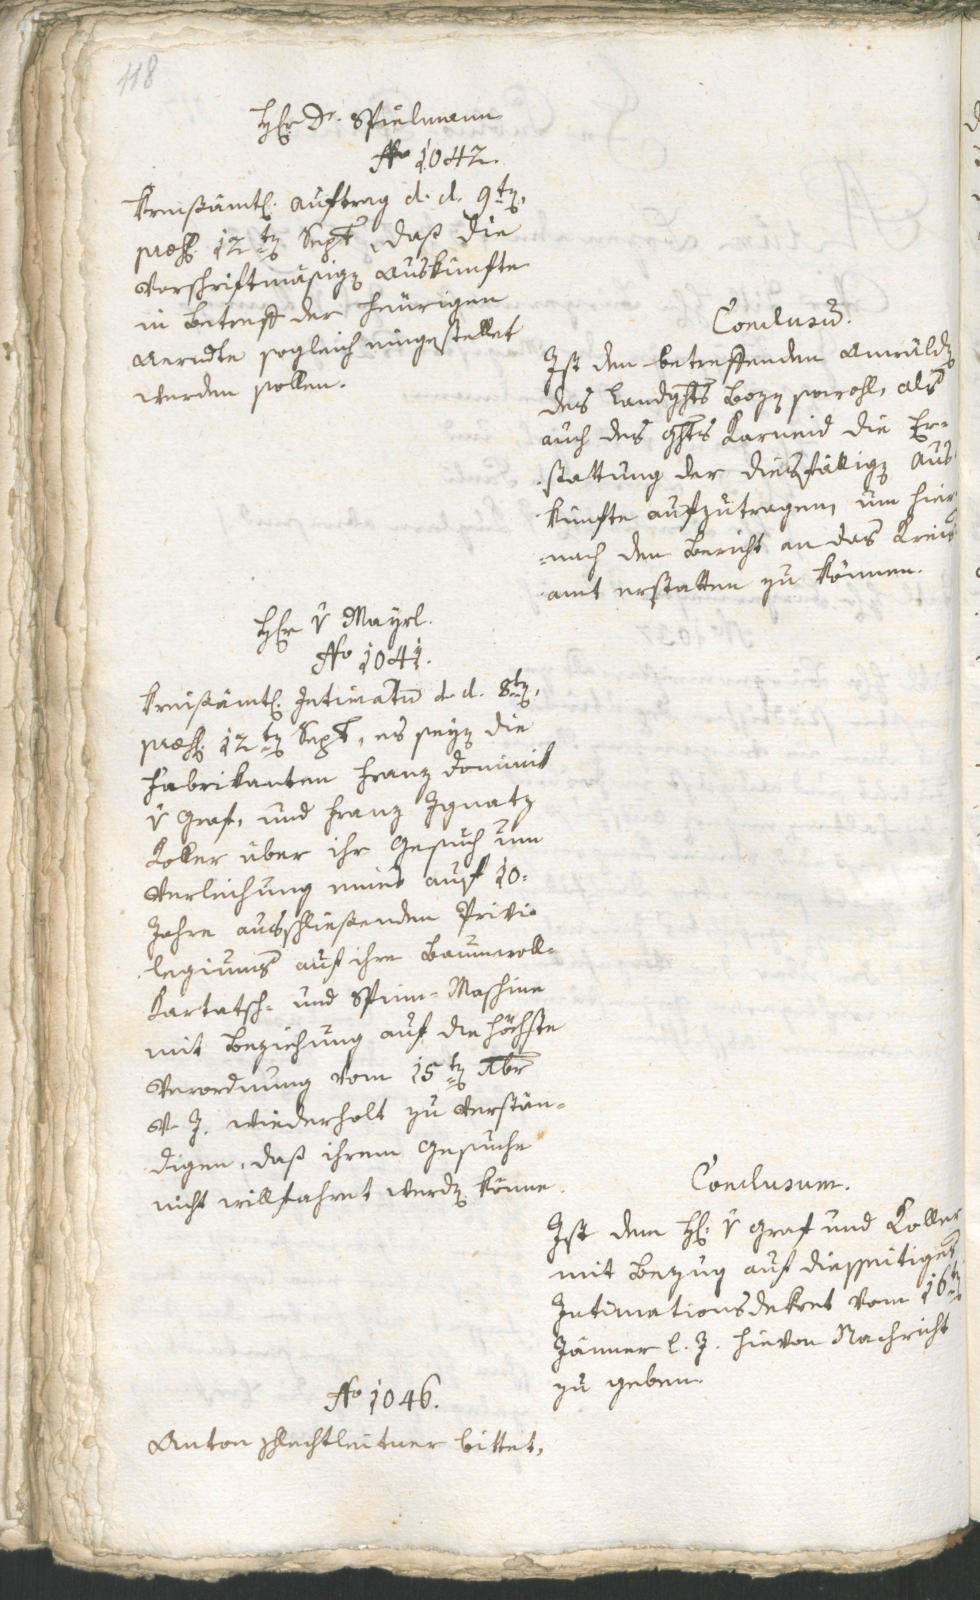 118
Hr. Dr. Spielmann
No 1042.
Kreisämtl. Auftrag d. d. 9ten,
præs. 12ten Sept., daß die
Vorschriftmäsigen Auskünfte
in Betreff der heürigen
Aerndte sogleich eingestellet
werden sollen.
Conclusū.
Ist den betreffenden Anwäldē
des Landghts Bozen sowohl, als
auch des ghts Karneid die Er-
stattung der diesfälligen Aus
künfte aufzutragen, um hier
nach den Bericht an das Kreis
amt erstatten zu können.
Hr. v Mayrl.
No 1041.
Kreisämtl. Intimatū d. d. 8ten,
præs. 12ten Sept., es seyen die
Fabrikanten Franz Dominik
v Graf, und Franz Ignatz
Koller über ihr Gesuch um
Verleihung eines auf 10.
Jahre ausschließenden Privi-
legiums auf ihre Baumwoll-
Kartatsch- und Spinn-Maschine
mit Beziehung auf die höchste
Verordnung vom 15ten Xbr
v. J. wiederholt zu verstän-
digen, daß ihrem Gesuche
nicht willfahret werden könne.
Conclusum.
Ist dem H: v Graf und Koller
mit Bezug auf diesseitiges
Intimationsdekret vom 16ten
Jänner l. J. hievon Nachricht
zu geben.
No 1046.
Anton bittet,